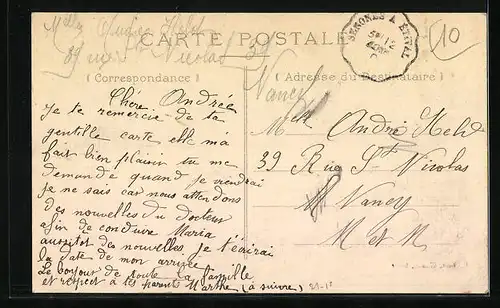 Mlle Andrée Held
39 rue St Nicolas
39
Nancy
CARTE POSTALE
SENONES A ETIVAL
10
(Correspondance)
(Adresse du Destinataire)
Chère Andrée
Je te remercie de ta
gentille carte elle m'a
fait bien plaisir tu me
demande quand je viendrai
je ne sais car nous attendons
des nouvelles du docteur
afin de conduire Maria
aussitot des nouvelles je t'écirai
la date de mon arrivée
Le bonjour de toute la famille
et respect à tes parents Marthe (à suivre)
Mlle André Held
39 Rue St Nicolas
Nancy
M et M